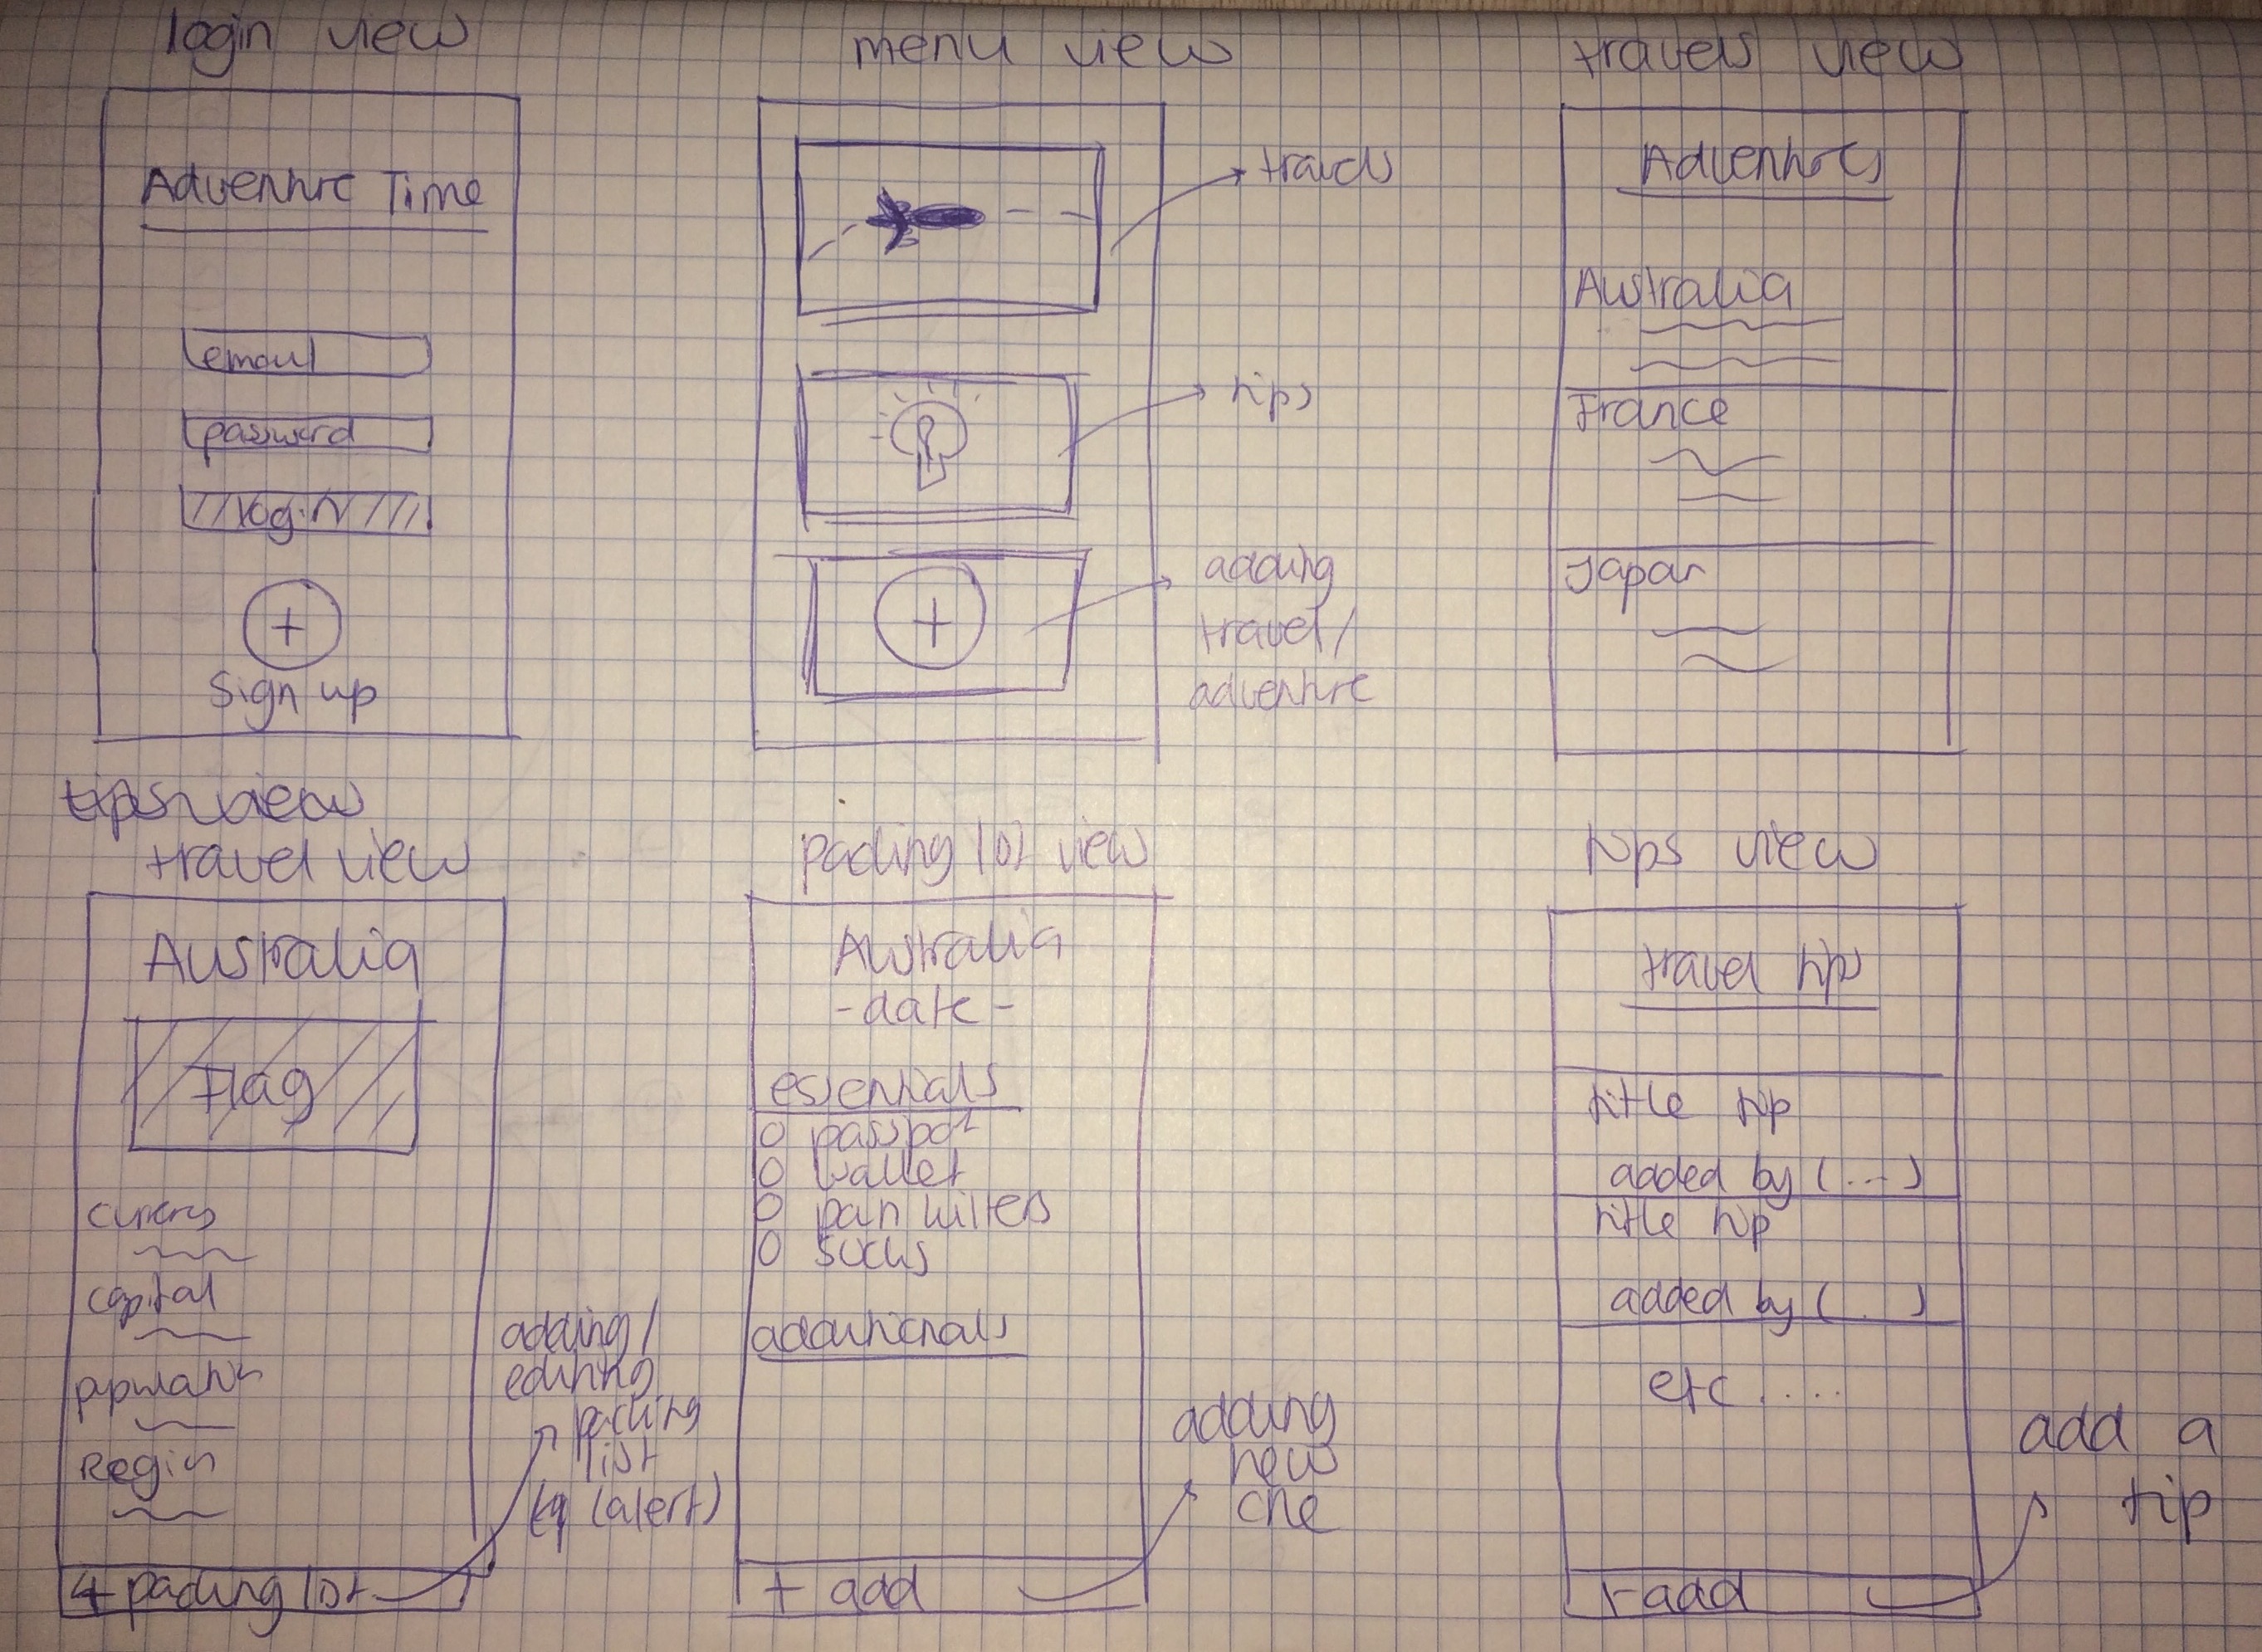 login view
Adventure Time
email
password
login
+
Sign up
menu view
travels
tips
+
adding
travel/
adventure
travels view
Adventures
Australia
France
Japan
tips view
travel view
Australia
Flag
currency
capital
population
Region
+ packing list
adding/
editing
packing
list
(alert)
packing list view
Australia
-date-
essentials
passport
wallet
pain killers
socks
additionals
+ add
adding
new
one
tips view
travel tips
title tip
added by (...)
title tip
added by (...)
etc ....
+ add
add a
tip